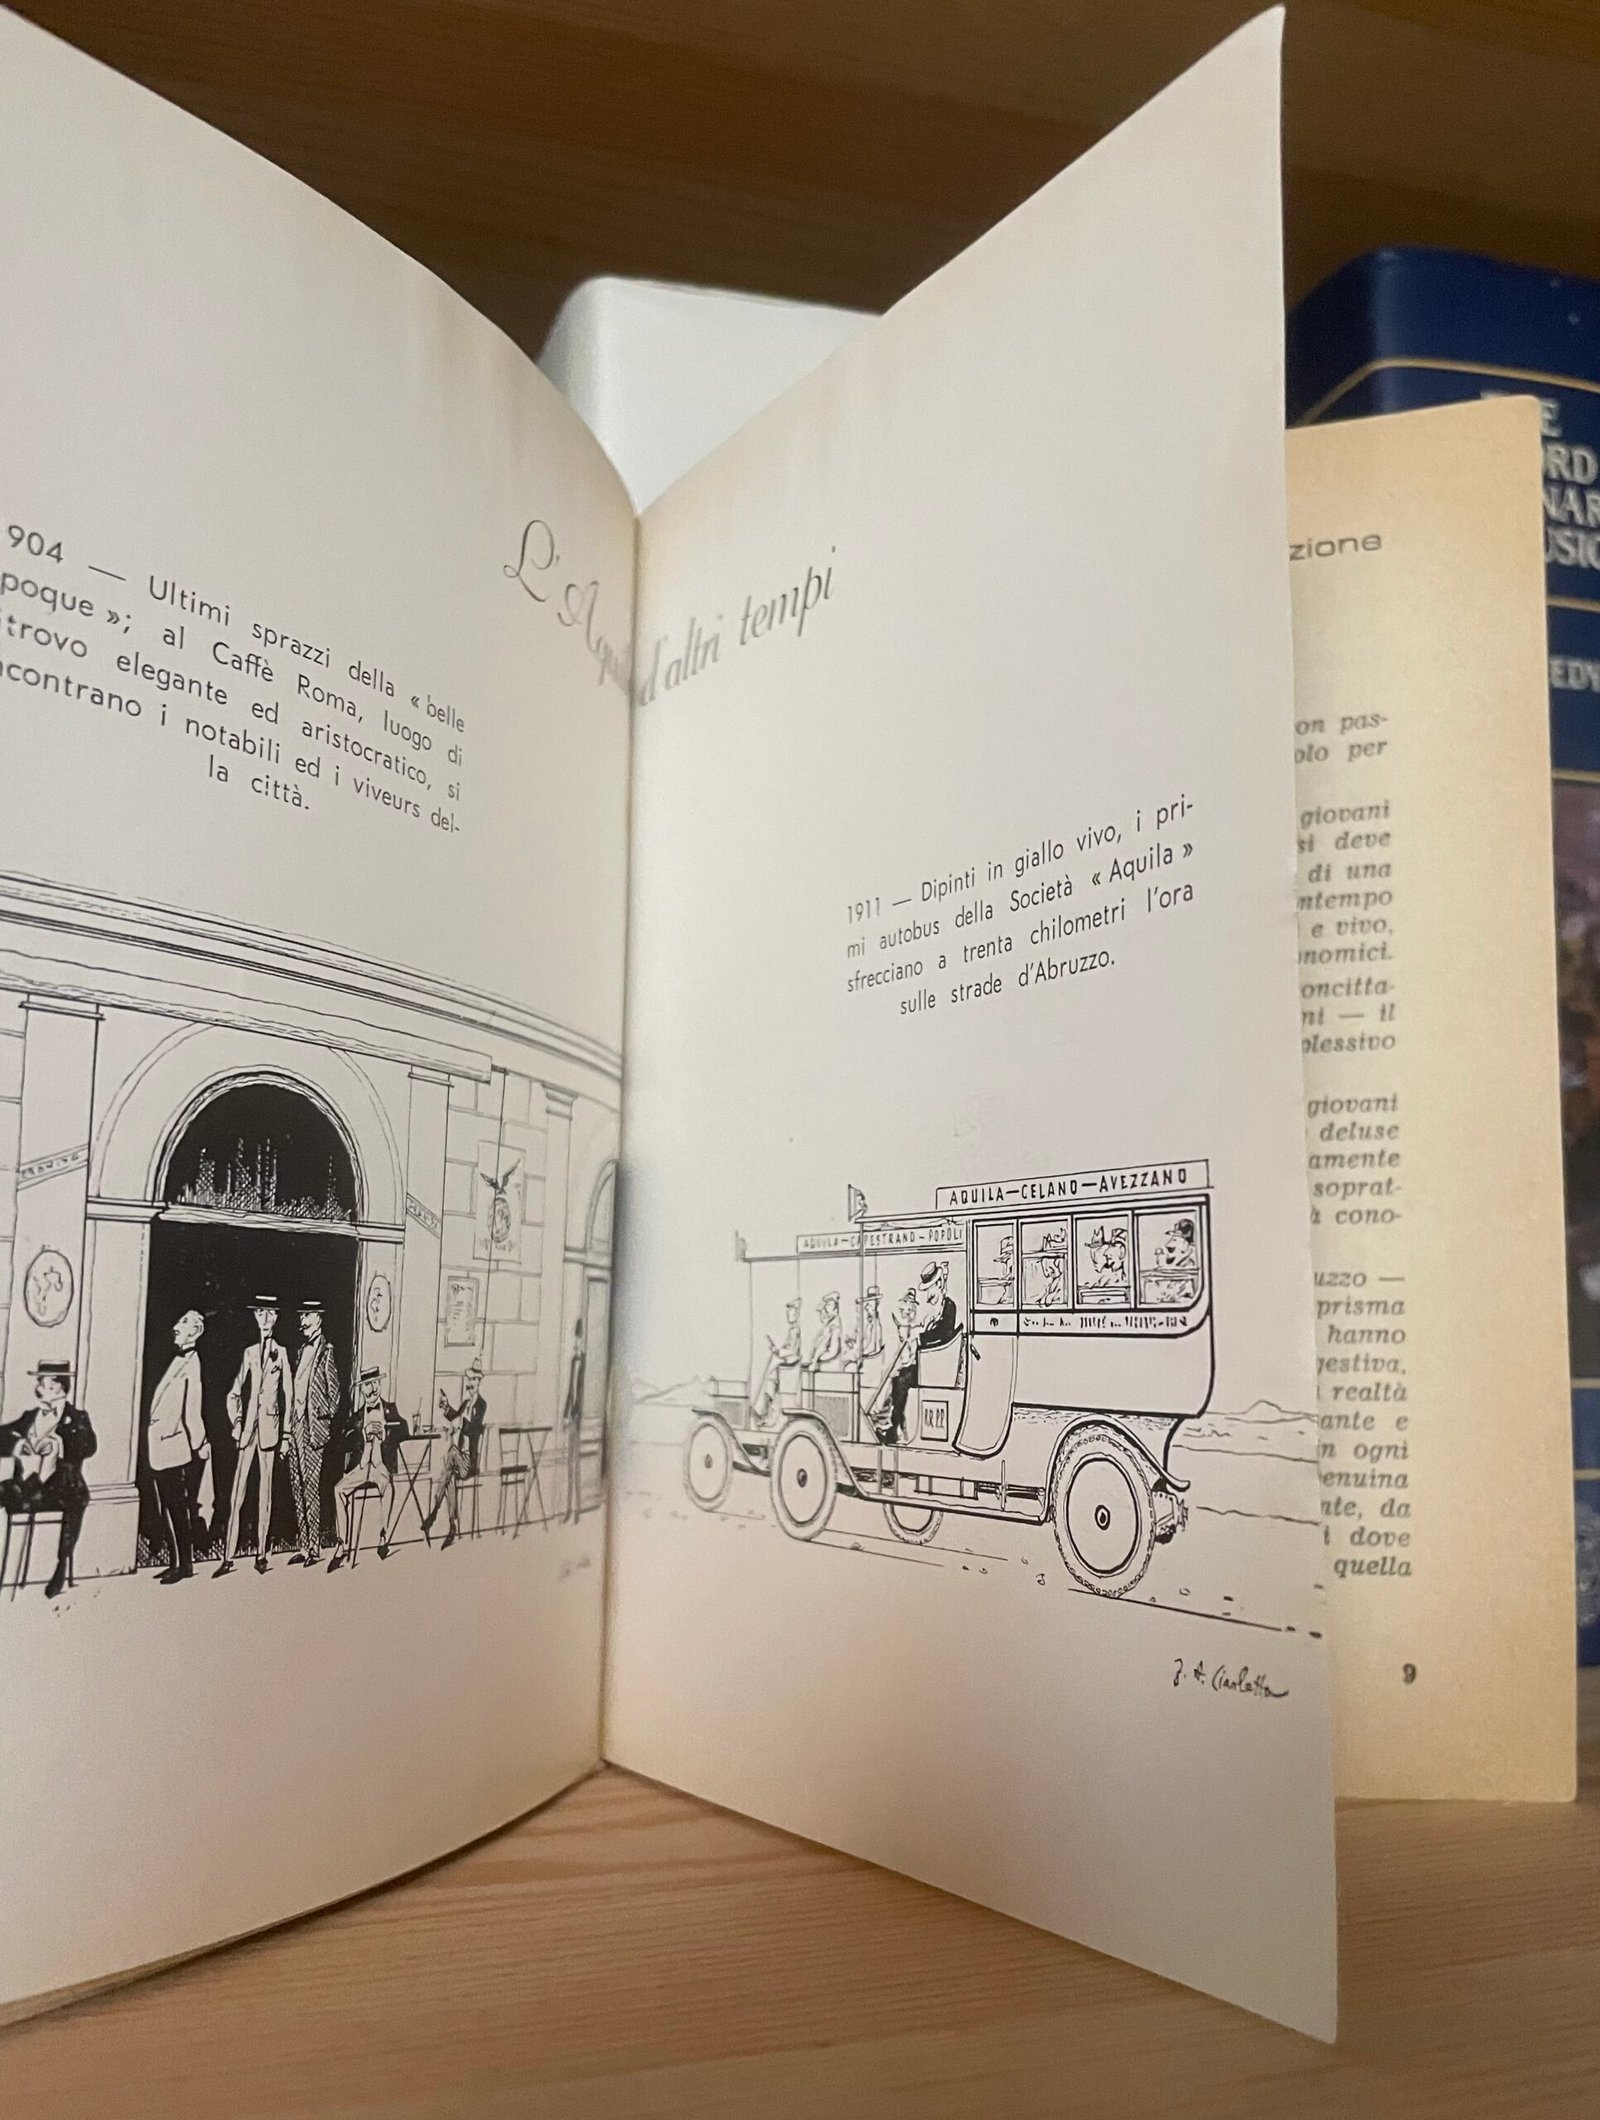 L'Aquila d'altri tempi
904 — Ultimi sprazzi della « belle
poque »; al Caffè Roma, luogo di
trovo elegante ed aristocratico, si
contrano i notabili ed i viveurs del-
la città.
1911 — Dipinti in giallo vivo, i pri-
mi autobus della Società « Aquila »
sfrecciano a trenta chilometri l'ora
sulle strade d'Abruzzo.
AQUILA—CELANO—AVEZZANO
AQUILA—CAPESTRANO—POPOLI
RR.PP.
zione
on pas-
olo per
giovani
si deve
di una
ntempo
e vivo,
nomici.
oncitta-
ni — il
plessivo
giovani
deluse
amente
soprat-
à cono-
uzzo —
prisma
hanno
gestiva,
realtà
ante e
in ogni
enuina
nte, da
i dove
quella
9
ORD
NAR
USIC
EDY